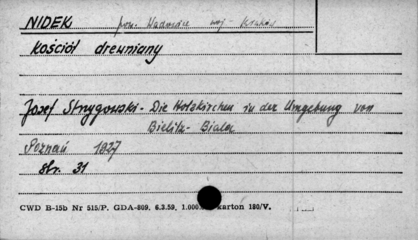 NIDEK pow. Wadowice woj. Kraków
Kościół drewniany
Josef Strzygowski - Die Holzkirchen in der Umgebung von
Bielitz - Biala
Poznań 1927
str. 31
CWD B-15b Nr 515/P. GDA-809. 6.3.59. 1.000 karton 180/V.